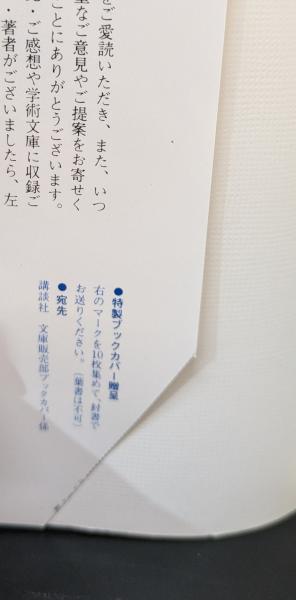 をご愛読いただき、また、いつ
なご意見やご提案をお寄せく
ことにありがとうございます。
・ご感想や学術文庫に収録ご
・著者がございましたら、左
●特製ブックカバー贈呈
右のマークを10枚集めて、封書で
お送りください。（葉書は不可）
●宛先
講談社　文庫販売部ブックカバー係